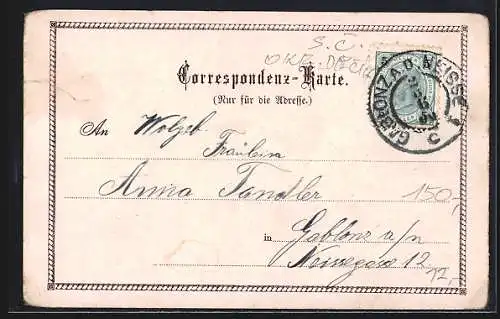 S. Č.
Correspondenz-Karte.
(Nur für die Adresse.)
GABLONZ A.D. NEISSE
An Wolgeb.
Fräulein
Anna Tandler
150,-
in Gablonz a/n
12
12,-